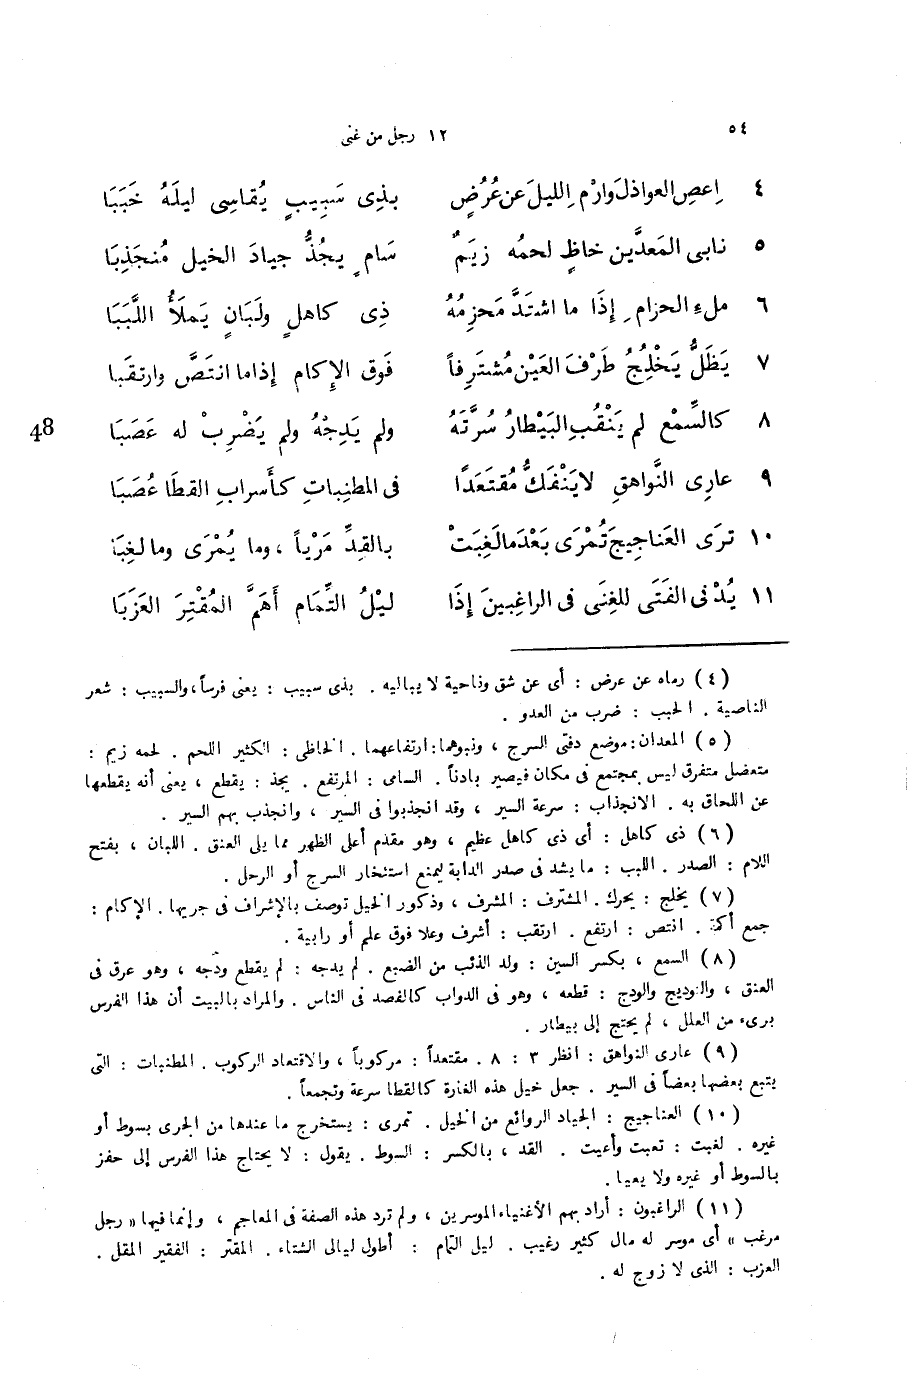 ٥٤
١٢ رجل من غنى
٤ اِعصِ العواذلَ وارْمِ الليلَ عن عُرُضٍ بذِى سَبِيبٍ يُقاسِى ليلَهُ خَبَبَا
٥ نابى المَعدَّينِ خاظٍ لحمُه زِيَمٌ سَامٍ يجُذُّ جيادَ الخيل مُنجَذِبَا
٦ ملءِ الحزامِ إِذَا ما اشتَدَّ مَحزِمُهُ ذِى كاهلٍ ولَبَانٍ يَملَأُ اللَّبَبَا
٧ يَظَلُّ يَخْلِجُ طَرْفَ العَيْنِ مُشتَرِفاً فَوقَ الإِكامِ إِذاما انتَصَّ وارتقَبا
48
٨ كالسِّمْعِ لم يَنْقُبِ البَيْطارُ سُرَّتَهُ ولم يَدِجْهُ ولم يَضْرِبْ له عَصَبَا
٩ عارِى النَّواهقِ لايَنْفَكُّ مُقتَعَدًا فى المطنِباتِ كأَسرابِ القطَا عُصَبَا
١٠ ترَى العَناجِيجَ تُمْرَى بَعْدَمالَغِبَتْ بالقِدِّ مَرْياً ، وما يُمْرَى وما لغِبَا
١١ يُدْنى الفَتَى للغِنَى فى الراغِبينَ إِذَا ليْلُ التِّمَامِ أَهَمَّ المُقْتِرَ العَزَبَا
(٤) رماه عن عرض : أى عن شق وناحية لا يباليه . بذى سبيب : يعنى فرساً، والسبيب : شعر
الناصية . الخبب : ضرب من العدو .
(٥) المعدان: موضع دفتى السرج ، ونبوهما: ارتفاعهما . الخاظى : الكثير اللحم . لحمه زيم :
متعضل متفرق ليس بمجتمع فى مكان فيصير بادناً . السامى : المرتفع . يجذ : يقطع ، يعنى أنه يقطعها
عن اللحاق به . الانجذاب : سرعة السير ، وقد انجذبوا فى السير ، وانجذب بهم السير .
(٦) ذى كاهل : أى ذى كاهل عظيم ، وهو مقدم أعلى الظهر مما يلى العنق . اللبان ، بفتح
اللام : الصدر . اللبب : ما يشد فى صدر الدابة ليمنع استئخار السرج أو الرحل .
(٧) يخلج : يحرك. المشترف : المشرف ، وذكور الخيل توصف بالإشراف فى جريها. الإكام :
جمع أكمة . انتص : ارتفع . ارتقب : أشرف وعلا فوق علم أو رابية .
(٨) السمع ، بكسر السين : ولد الذئب من الضبع . لم يدجه : لم يقطع ودجه ، وهو عرق فى
العنق ، والتوديج والودج : قطعه ، وهو فى الدواب كالفصد فى الناس . والمراد بالبيت أن هذا الفرس
برىء من العلل ، لم يحتج إلى بيطار .
(٩) عارى النواهق : انظر ٣ : ٨ . مقتعداً : مركوباً ، والاقتعاد الركوب . المطنبات : التى
يتبع بعضها بعضاً فى السير . جعل خيل هذه الغارة كالقطا سرعة وتجمعاً .
(١٠) العناجيج : الجياد الروائع من الخيل . تمرى : يستخرج ما عندها من الجرى بسوط أو
غيره . لغبت : تعبت وأعيت . القد ، بالكسر : السوط . يقول : لا يحتاج هذا الفرس إلى حفز
بالسوط أو غيره ولا يعيا .
(١١) الراغبون : أراد بهم الأغنياء الموسرين ، ولم ترد هذه الصفة فى المعاجم ، وإنما فيها « رجل
مرغب » أى موسر له مال كثير رغيب . ليل التمام : أطول ليالى الشتاء . المقتر : الفقير المقل .
العزب : الذى لا زوج له .